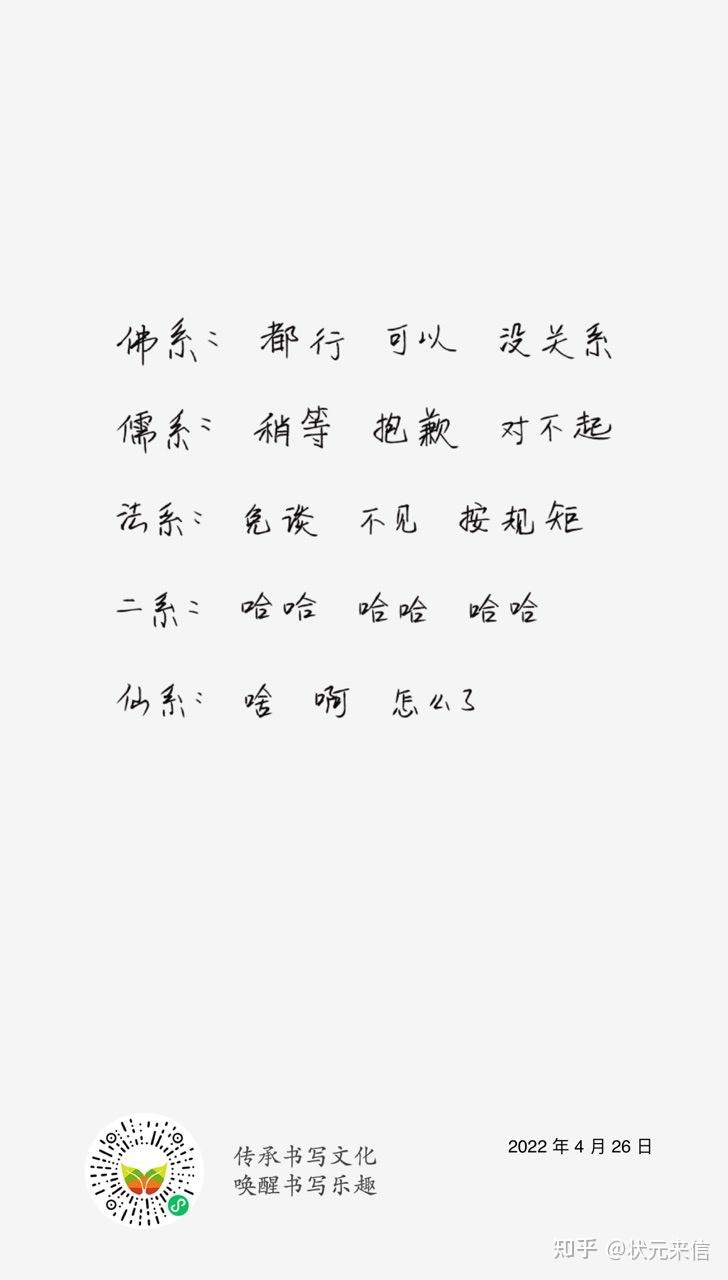 佛系：都行 可以 没关系
儒系：稍等 抱歉 对不起
法系：免谈 不见 按规矩
二系：哈哈 哈哈 哈哈
仙系：啥 啊 怎么了
传承书写文化
唤醒书写乐趣
2022 年 4 月 26 日
知乎 @状元来信